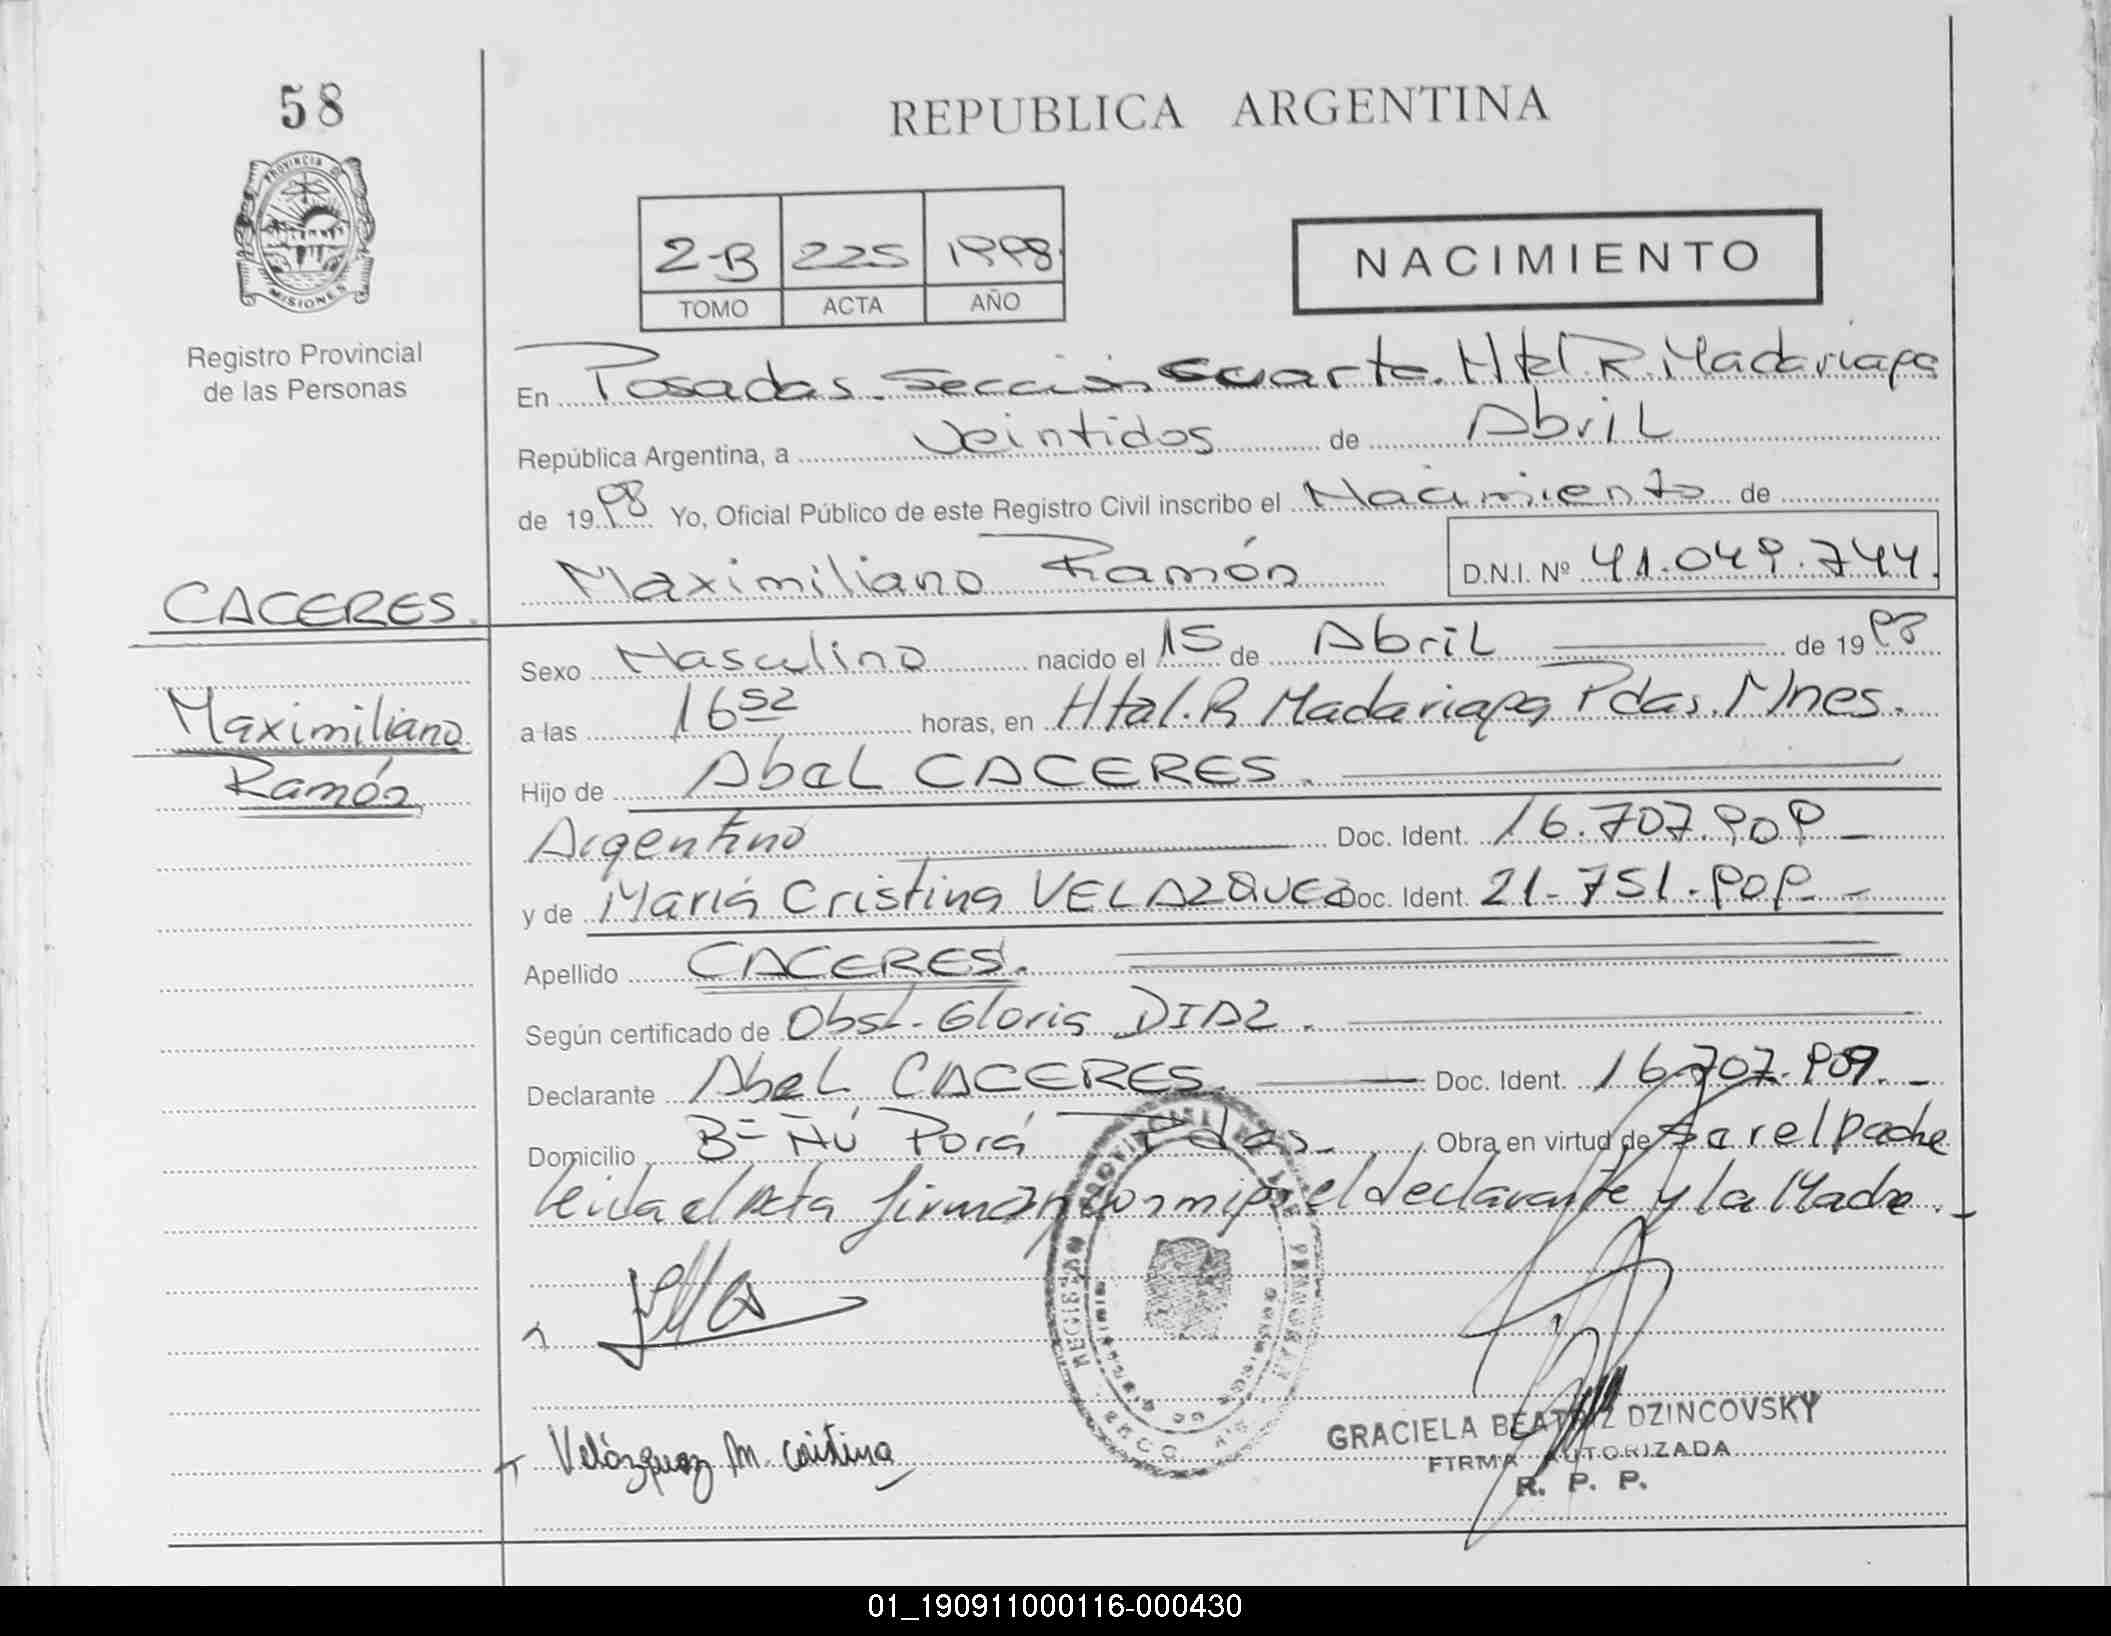 58
PROVINCIA DE
MISIONES
Registro Provincial
de las Personas
CACERES.
Maximiliano
Ramón
REPUBLICA ARGENTINA
2-B 225 1998.
TOMO ACTA AÑO
NACIMIENTO
En Posadas. Sección Cuarta. Htal. R. Madariaga
República Argentina, a Veintidos de Abril
de 1998 Yo, Oficial Público de este Registro Civil inscribo el Nacimiento de
Maximiliano Ramón D.N.I. Nº 41.049.744.
Sexo Masculino nacido el 15 de Abril de 1998
a las 16 52 horas, en Htal. R Madariaga Pdas. Mnes.
Hijo de Abel CACERES.
Argentino Doc. Ident. 16.707.909
y de María Cristina VELAZQUEZ Doc. Ident. 21.751.909
Apellido CACERES.
Según certificado de Obst. Gloria DIAZ.
Declarante Abel CACERES Doc. Ident. 16.707.909.
Domicilio Bº Ñú Porá Pdas. Obra en virtud de Ser el padre
leída el Acta firman conmigo el declarante y la Madre.
Velázquez M. Cristina
GRACIELA BEATRIZ DZINCOVSKY
FIRMA AUTORIZADA
R. P. P.
01_190911000116-000430